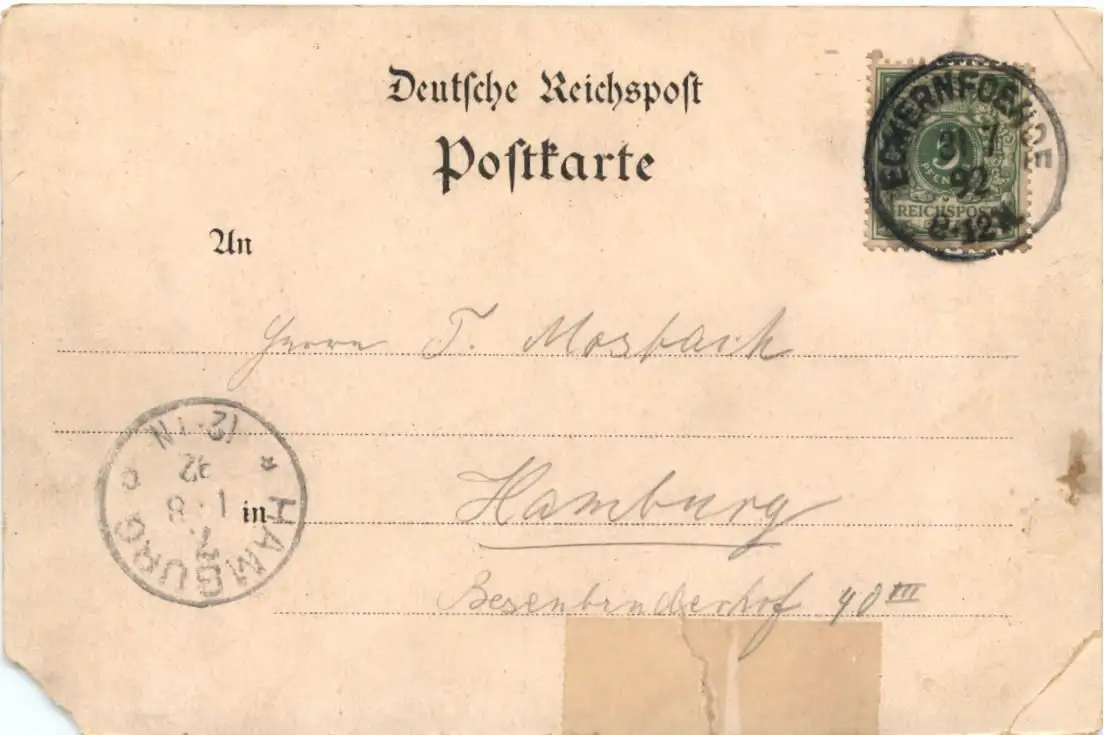 Deutsche Reichspost
Postkarte
ECKERNFOERDE
31 7
92
8-12 N
5
PFENNIG
REICHSPOST
An
Herrn T. Mosbach
Hamburg
in
Besenbinderhof 40 III
HAMBURG
1. 8
92
12-1N